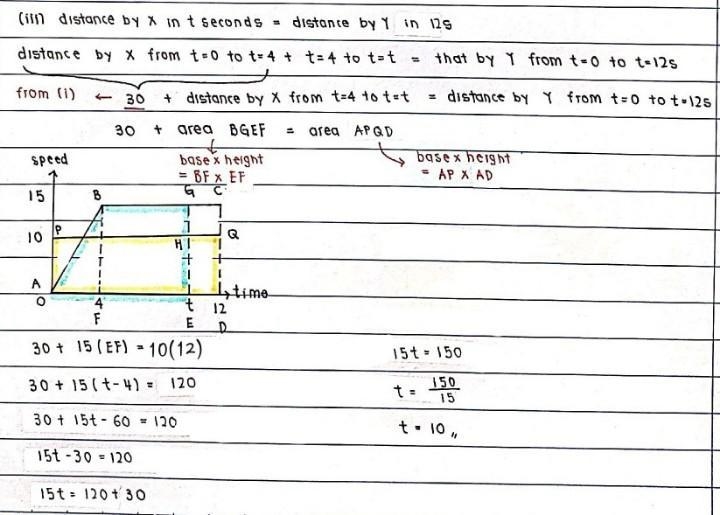 (iii) distance by X in t seconds = distance by Y in 12s
distance by X from t=0 to t=4 + t=4 to t=t = that by Y from t=0 to t=12s
from (i) ← 30 + distance by X from t=4 to t=t = distance by Y from t=0 to t=12s
30 + area BGEF = area APQD
speed
base x height
= BF x EF
base x height
= AP x AD
15 B G C
10 P H Q
A
O 4 t 12 time
F E D
30 + 15(EF) = 10(12)
30 + 15(t-4) = 120
30 + 15t - 60 = 120
15t - 30 = 120
15t = 120 + 30
15t = 150
t = 150/15
t = 10 〃